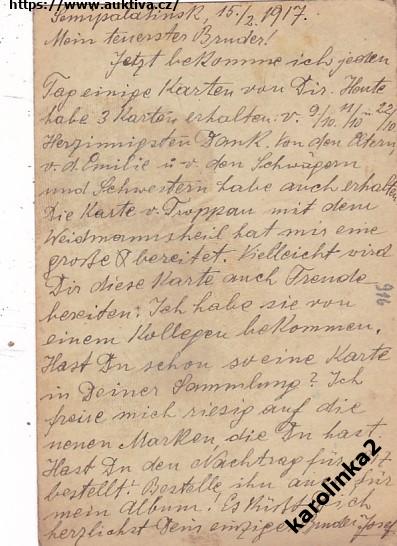 https://www.auktiva.cz/
Semipalatinsk, 15./2. 1917.
Mein teuerster Bruder!
Jetzt bekomme ich jeden
Tag einige Karten von Dir. Heute
habe 3 Karten erhalten: v. 9/10. 11/10 u 22/10
Herzinnigsten Dank. Von den Eltern,
v. d. Emilie u. v. den Schwägern
und Schwestern habe auch erhalten
Die Karte v. Troppau mit dem
Weidmannsheil hat mir eine
große bereitet. Vielleicht wird
Dir diese Karte auch Freude
bereiten. Ich habe sie von
einem Kollegen bekommen.
Hast Du schon so eine Karte
in Deiner Sammlung? Ich
freue mich riesig auf die
neuen Marken, die Du hast
Hast Du den Nachtrag für
bestellt? Bestelle ihn auch für
mein Album! Es küßt Dich
herzlichst Dein einziger Bruder Josef
916
karolinka2